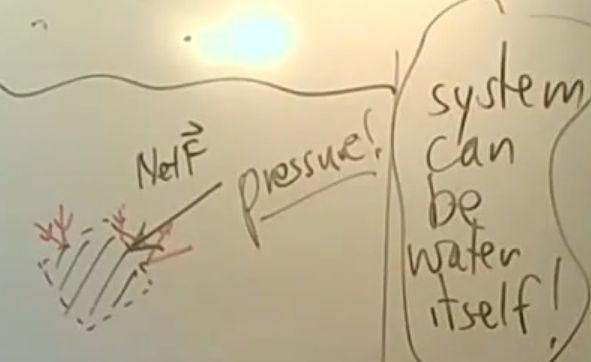 Net F⃗
pressure!
system
can
be
water
itself!